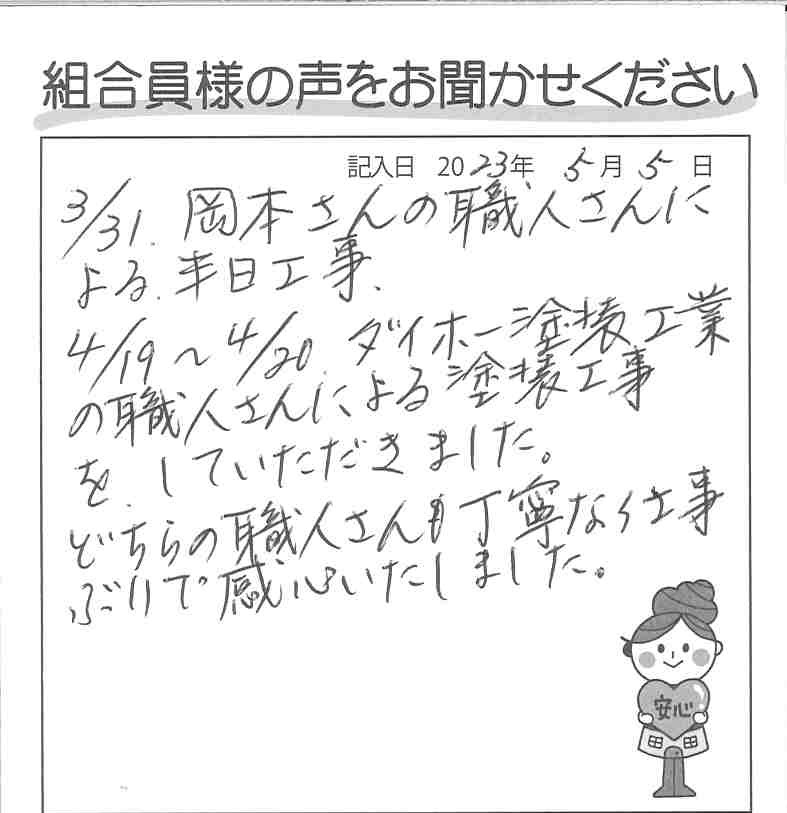 組合員様の声をお聞かせください
記入日 2023年 5月 5日
3/31. 岡本さんの職人さんに
よる. 半日工事.
4/19〜4/20. ダイホー塗装工業
の職人さんによる塗装工事
を. していただきました。
どちらの職人さんも丁寧な仕事
ぶりで感心いたしました。
安心